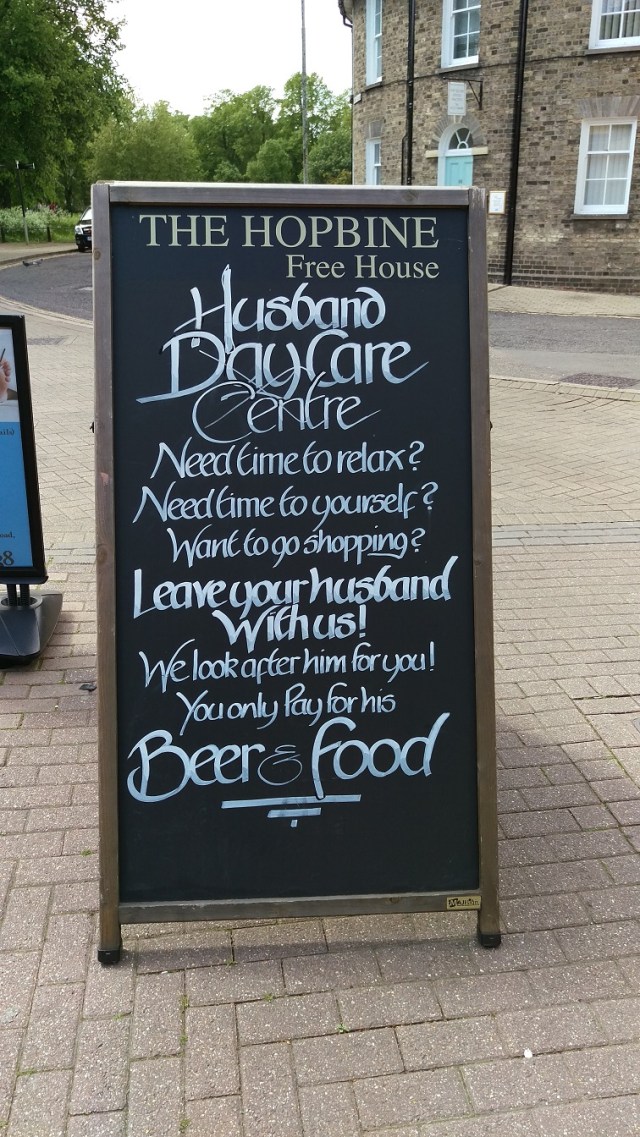 THE HOPBINE
Free House
Husband
Day Care
Centre
Need time to relax?
Need time to yourself?
Want to go shopping?
Leave your husband
With us!
We look after him for you!
You only Pay for his
Beer & food